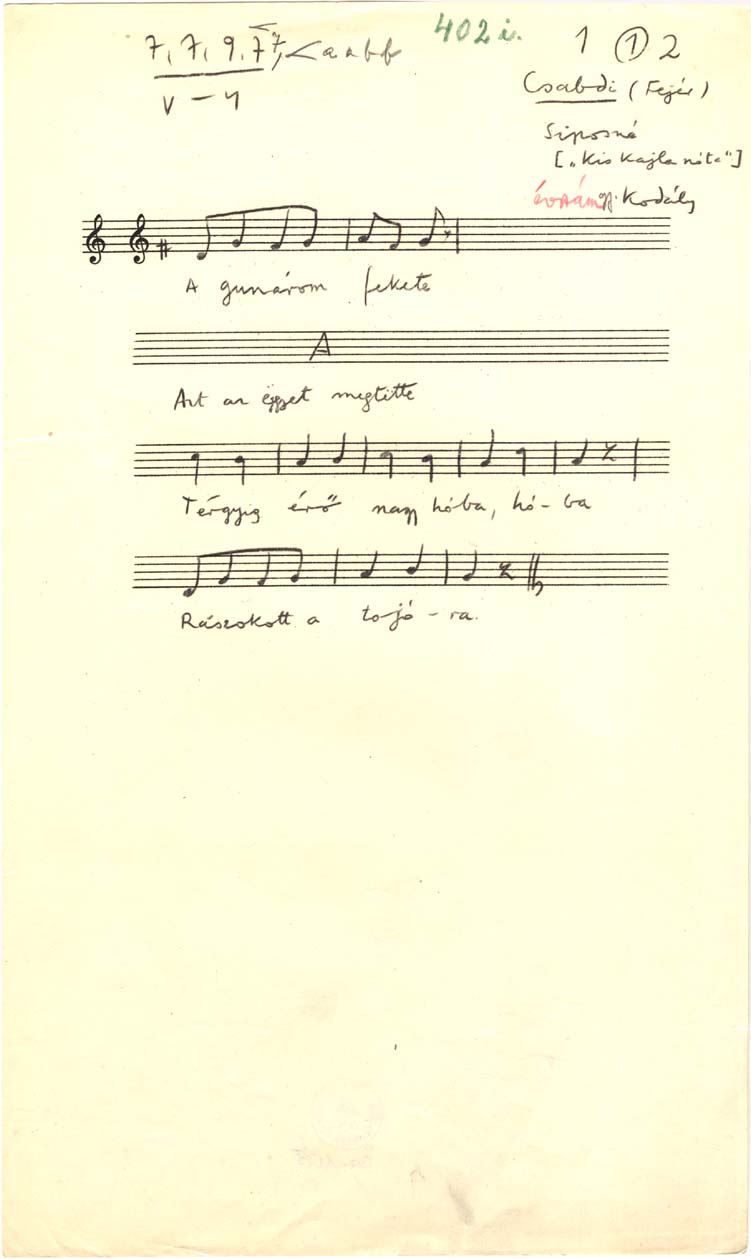 7, 7, 9, 7 7, < a a b b
V – 4
402 i.
1 (1) 2
Csabdi (Fejér)
Siposné
[„Kis kajla nóta"]
gy. Kodály
A gunárom fekete
A
Azt az egyet megtitte
Térgyig érő nagy hóba, hó-ba
Rászokott a tojó-ra.